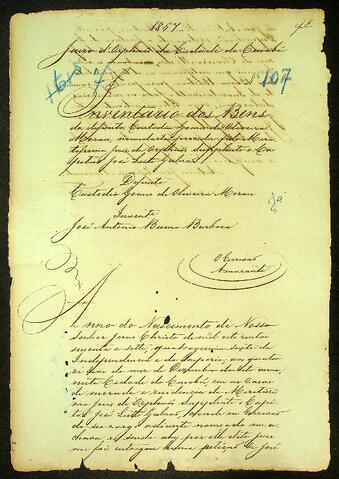 1867
Juizo d'Orphãos da Cidade de Cuiabá
Nº 107
Inventario dos Bens
do defunto Custodio Gomes de Oliveira
Moraes, pelo Me
ritissimo Juiz de Orphãos supplente o Ca
pitão José Leite Galvão
Defunto
Custodio Gomes de Oliveira Moraes
Invente
José Antonio Bueno Barboza
O Escrivão
Amarante
Anno do Nascimento de Nosso
Senhor Jesus Christo de mil oito centos
sessenta e sete, quadragesimo sexto da
Independencia e do Imperio, aos quatro
dias do mez de Dezembro do dito anno,
nesta Cidade de Cuiabá, em as Casas
de morada e residencia do Meritissi
mo Juiz de Orphãos supplente o Capi
tão José Leite Galvão, onde eu Escrivão
de seu cargo adiante nomeado me a
chava e sendo ahy por elle dito Juiz
me foi entregue huma petição de José